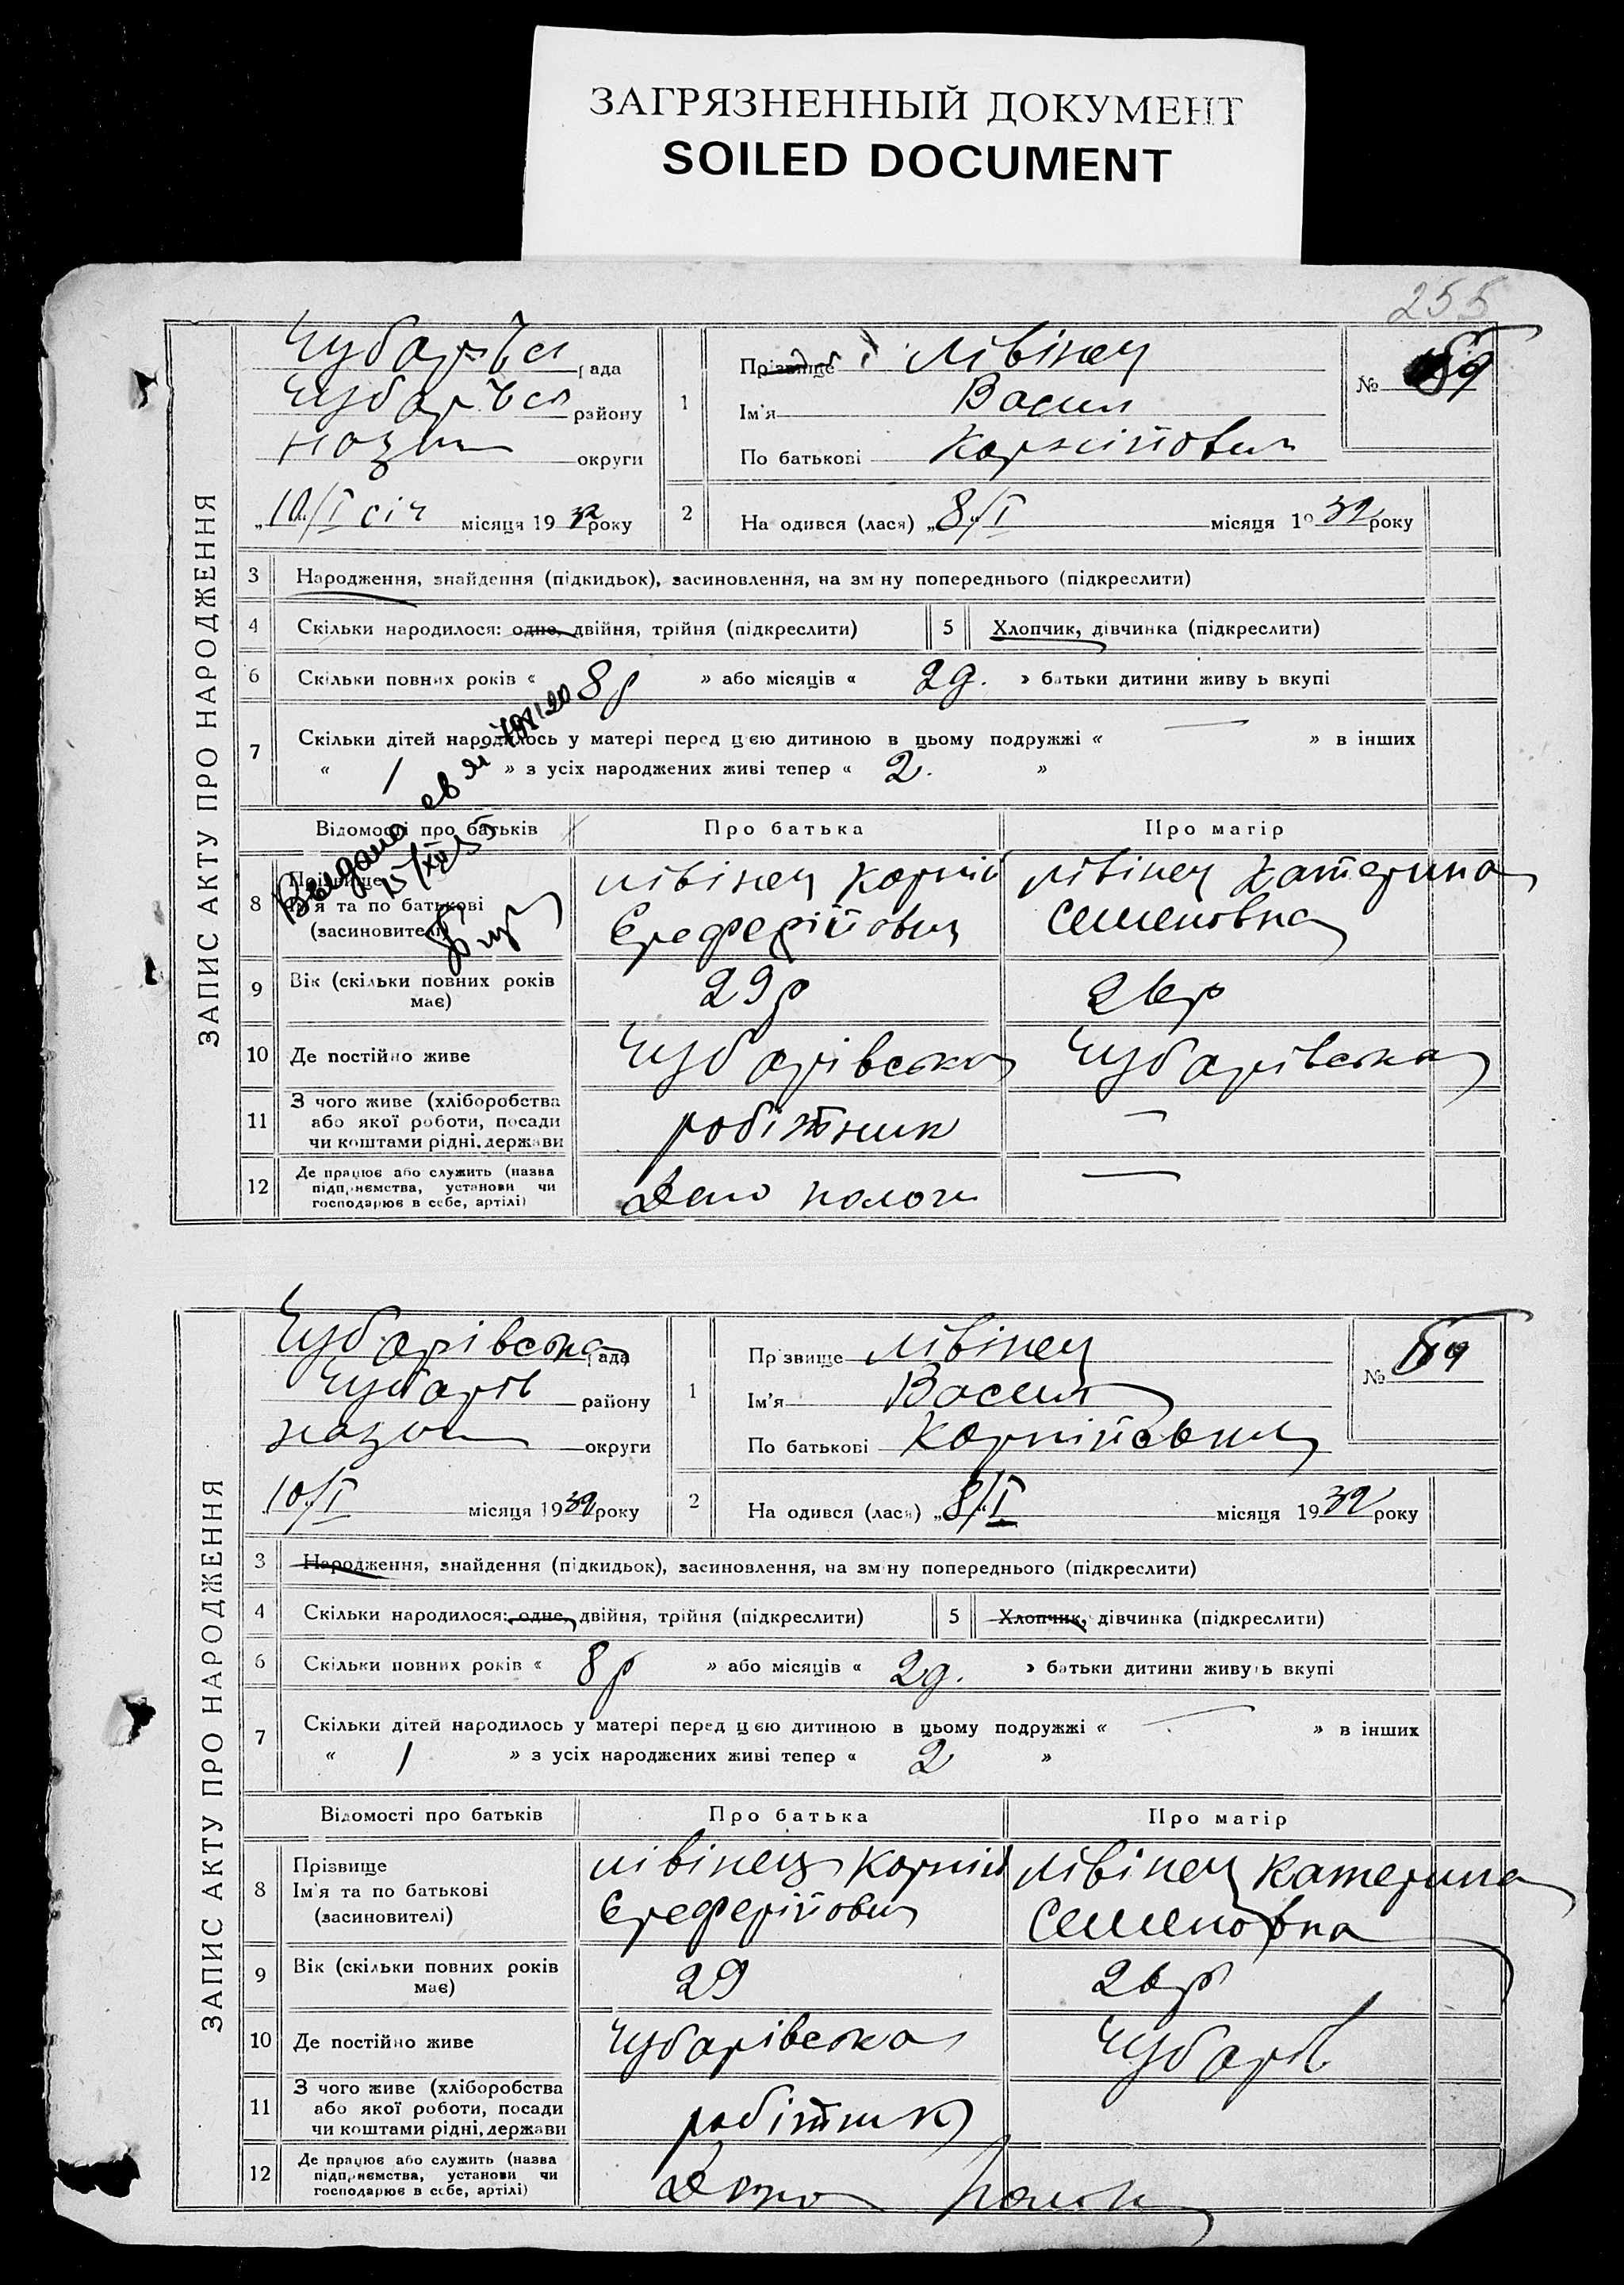 ЗАГРЯЗНЕННЫЙ ДОКУМЕНТ
SOILED DOCUMENT
255
ЗАПИС АКТУ ПРО НАРОДЖЕННЯ
рада
району
округи
„10/I січ місяця 1932 року
1 Прізвище Лівінец
Ім'я Васил
По батькові Корнійович
№ 89
2 На одився (лася) „8/I місяця 1932 року
3 Народження, знайдення (підкидьок), засиновлення, на зм ну попереднього (підкреслити)
4 Скільки народилося: одне, двійня, трійня (підкреслити)
5 Хлопчик, дівчинка (підкреслити)
6 Скільки повних років « 8 р » або місяців « 2 д. » батьки дитини живу ь вкупі
7 Скільки дітей народилось у матері перед цією дитиною в цьому подружжі « — » в інших
« 1 » з усіх народжених живі тепер « 2. »
Выдано
15/XII
Відомості про батьків Про батька Про матір
8 Прізвище
Ім'я та по батькові
(засиновителі)
Лівінец Корній
Ереферійович
Лівінец Катерина
Семеновна
9 Вік (скільки повних років має) 29 р 26 р
10 Де постійно живе Чубарівська Чубарівська
11 З чого живе (хліборобства або якої роботи, посади чи коштами рідні, держави робітник —
12 Де працює або служить (назва підприємства, установи чи господарює в себе, артілі) Депо пологи —
ЗАПИС АКТУ ПРО НАРОДЖЕННЯ
Чубарівська рада
Чубарів району
округи
10/I місяця 1932 року
1 Прізвище Лівінец
Ім'я Василь
По батькові Корнійович
№ 89
2 На одився (лася) „8/I місяця 1932 року
3 Народження, знайдення (підкидьок), засиновлення, на зм ну попереднього (підкреслити)
4 Скільки народилося: одне, двійня, трійня (підкреслити)
5 Хлопчик, дівчинка (підкреслити)
6 Скільки повних років « 8 р » або місяців « 2 д. » батьки дитини живуть вкупі
7 Скільки дітей народилось у матері перед цією дитиною в цьому подружжі « — » в інших
« 1 » з усіх народжених живі тепер « 2 »
Відомості про батьків Про батька Про матір
8 Прізвище
Ім'я та по батькові
(засиновителі)
Лівінец Корній
Ереферійович
Лівінец Катерина
Семеновна
9 Вік (скільки повних років має) 29 26 р
10 Де постійно живе Чубарівська Чубарів
11 З чого живе (хліборобства або якої роботи, посади чи коштами рідні, держави робітник
12 Де працює або служить (назва підприємства, установи чи господарює в себе, артілі) Депо Пологи